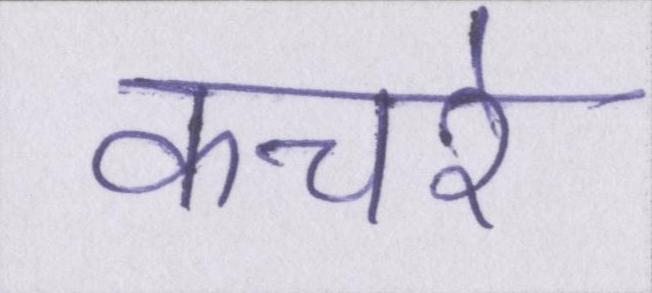 कचरे